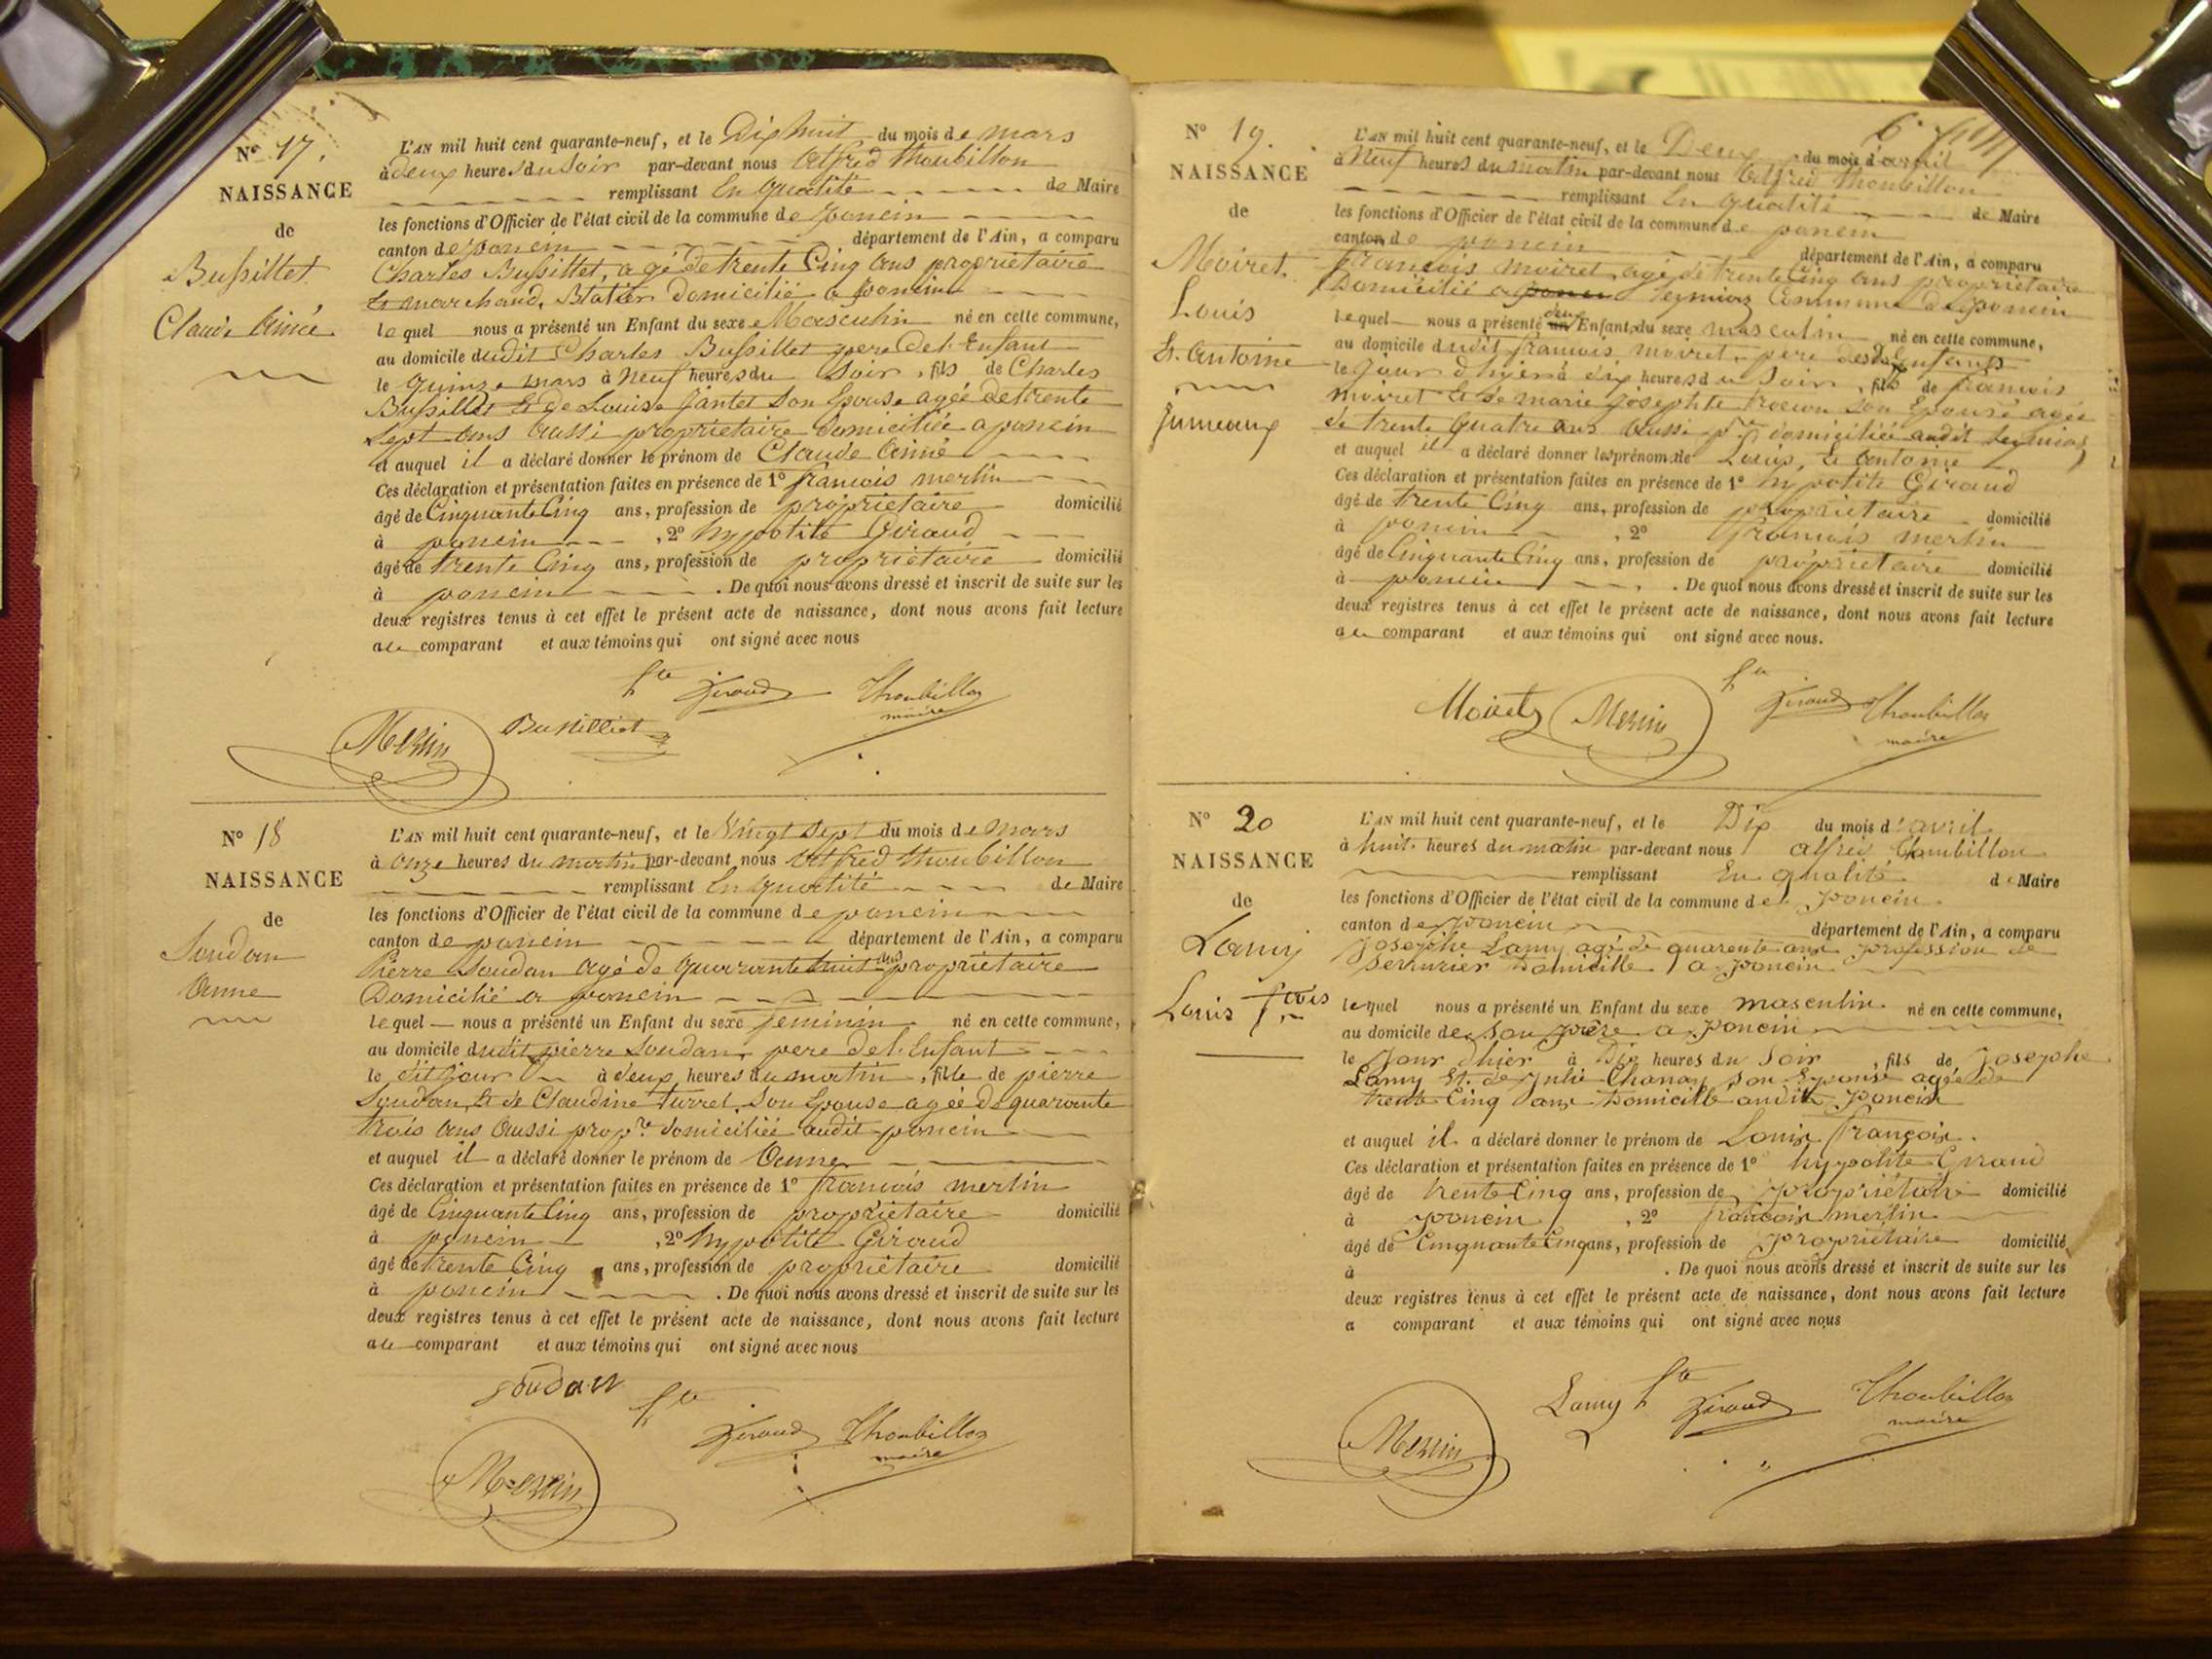 N° 17.
NAISSANCE
de
Bussillet
Claude Aimé
L'AN mil huit cent quarante-neuf, et le Dix huit du mois de mars
à deux heures du Soir par-devant nous Alfred Thoubillon
remplissant En qualité de Maire
les fonctions d'Officier de l'état civil de la commune de poncin
canton de poncin département de l'Ain, a comparu
Charles Bussillet, agé de trente Cinq ans propriétaire
Et marchand, domicilié a poncin
lequel nous a présenté un Enfant du sexe Masculin né en cette commune,
au domicile dudit Charles Bussillet pere de l'Enfant
le quinze mars à Neuf heures du Soir, fils de Charles
Bussillet Et de Louise Jantet Son Epouse agée de trente
Sept ans aussi propriétaire domiciliée a poncin
et auquel il a déclaré donner le prénom de Claude Aimé
Ces déclaration et présentation faites en présence de 1° francois merlin
âgé de Cinquante Cinq ans, profession de propriétaire domicilié
à poncin , 2° hypolite Giraud
âgé de trente Cinq ans, profession de propriétaire domicilié
à poncin . De quoi nous avons dressé et inscrit de suite sur les
deux registres tenus à cet effet le présent acte de naissance, dont nous avons fait lecture
au comparant et aux témoins qui ont signé avec nous
hte Giraud Thoubillon
maire
Merlin Bussilliet
N° 18
NAISSANCE
de
Soudan
Anne
L'AN mil huit cent quarante-neuf, et le Vingt Sept du mois de Mars
à Onze heures du matin par-devant nous Alfred Thoubillon
remplissant En qualité de Maire
les fonctions d'Officier de l'état civil de la commune de poncin
canton de poncin département de l'Ain, a comparu
Pierre Soudan agé de quarante huit ans propriétaire
Domicilié a poncin
lequel nous a présenté un Enfant du sexe feminin né en cette commune,
au domicile dudit pierre Soudan, pere de l'Enfant
le dit jour à deux heures du matin, fille de pierre
Soudan, Et de Claudine Turrel, Son Epouse agée de quarante
trois ans aussi propre domiciliée audit poncin
et auquel il a déclaré donner le prénom de Anne
Ces déclaration et présentation faites en présence de 1° francois merlin
âgé de Cinquante Cinq ans, profession de propriétaire domicilié
à poncin , 2° hypolite Giraud
âgé de trente Cinq ans, profession de propriétaire domicilié
à poncin . De quoi nous avons dressé et inscrit de suite sur les
deux registres tenus à cet effet le présent acte de naissance, dont nous avons fait lecture
au comparant et aux témoins qui ont signé avec nous
soudan hte Giraud Thoubillon
maire
Merlin
N° 19.
NAISSANCE
de
Moiret.
Louis
Et Antoine
jumeaux
L'AN mil huit cent quarante-neuf, et le Deux du mois d'avril
à Neuf heures du matin par-devant nous Alfred Thoubillon
remplissant En qualité de Maire
les fonctions d'Officier de l'état civil de la commune de poncin
canton de poncin département de l'Ain, a comparu
francois moiret, agé de trente Cinq ans propriétaire
Domicilié a poncin leymiaz Commune de poncin
lequel nous a présenté un deux Enfants du sexe masculin né en cette commune,
au domicile dudit francois moiret, pere desdits Enfants
le jour d'hier à dix heures du Soir, fils de francois
moiret Et de marie josephte son Epouse agée
de trente quatre ans aussi pre domiciliée audit leymiaz
et auquel il a déclaré donner les prénom de Louis, Et Antoine
Ces déclaration et présentation faites en présence de 1° hypolite Giraud
âgé de trente Cinq ans, profession de propriétaire domicilié
à poncin , 2° francois merlin
âgé de Cinquante Cinq ans, profession de propriétaire domicilié
à poncin . De quoi nous avons dressé et inscrit de suite sur les
deux registres tenus à cet effet le présent acte de naissance, dont nous avons fait lecture
au comparant et aux témoins qui ont signé avec nous.
Moiret Merlin hte Giraud Thoubillon
maire
N° 20
NAISSANCE
de
Lamy
Louis fcois
L'AN mil huit cent quarante-neuf, et le Dix du mois d'avril
à huit heures du matin par-devant nous Alfred Thoubillon
remplissant En qualité de Maire
les fonctions d'Officier de l'état civil de la commune de Poncin
canton de Poncin département de l'Ain, a comparu
Josephe Lamy agé de quarente ans profession de
serrurier domicille a Poncin
lequel nous a présenté un Enfant du sexe masculin né en cette commune,
au domicile de son père a Poncin
le jour dhier à Dix heures du Soir, fils de Josephe
Lamy Et de Julie Chanay son Epouse agée de
trente Cinq ans domicille audit Poncin
et auquel il a déclaré donner le prénom de Louis françois.
Ces déclaration et présentation faites en présence de 1° hypolite Giraud
âgé de trente Cinq ans, profession de propriétaire domicilié
à Poncin , 2° françois merlin
âgé de Cinquante Cinq ans, profession de Propriétaire domicilié
à . De quoi nous avons dressé et inscrit de suite sur les
deux registres tenus à cet effet le présent acte de naissance, dont nous avons fait lecture
a comparant et aux témoins qui ont signé avec nous
Merlin Lamy hte Giraud Thoubillon
maire